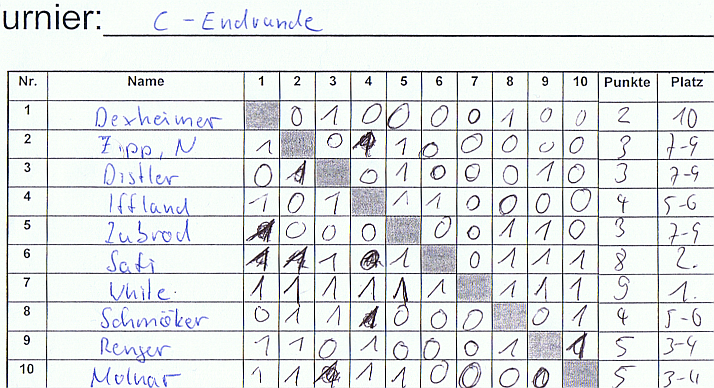 urnier: C - Endrunde
Nr. Name 1 2 3 4 5 6 7 8 9 10 Punkte Platz
1 Dexheimer 0 1 0 0 0 0 1 0 0 2 10
2 Zipp, N 1 0 1 1 0 0 0 0 0 3 7-9
3 Distler 0 1 0 1 0 0 0 1 0 3 7-9
4 Iffland 1 0 1 1 1 0 0 0 0 4 5-6
5 Zubrod 1 0 0 0 0 0 1 1 0 3 7-9
6 Safi 1 1 1 0 1 0 1 1 1 8 2.
7 Vhile 1 1 1 1 1 1 1 1 1 9 1.
8 Schmöker 0 1 1 1 0 0 0 0 1 4 5-6
9 Renger 1 1 0 1 0 0 0 1 1 5 3-4
10 Molnar 1 1 1 1 1 0 0 0 0 5 3-4